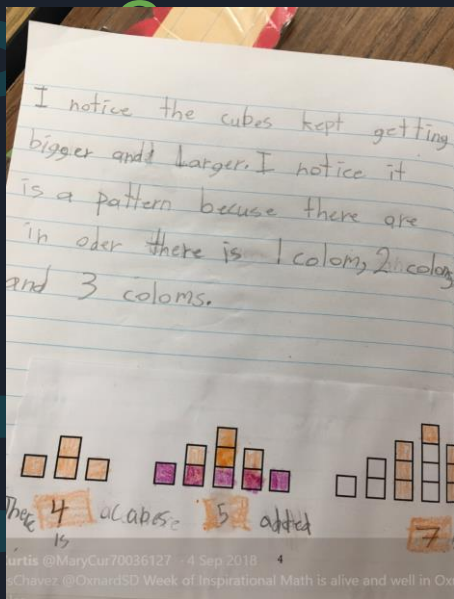 I notice the cubes kept getting
bigger and Larger. I notice it
is a pattern becuse there are
in oder there is 1 colom, 2 colom
and 3 coloms.
There 4 5 added 7
is
urtis @MaryCur70036127 · 4 Sep 2018 4
sChavez @OxnardSD Week of Inspirational Math is alive and well in Ox